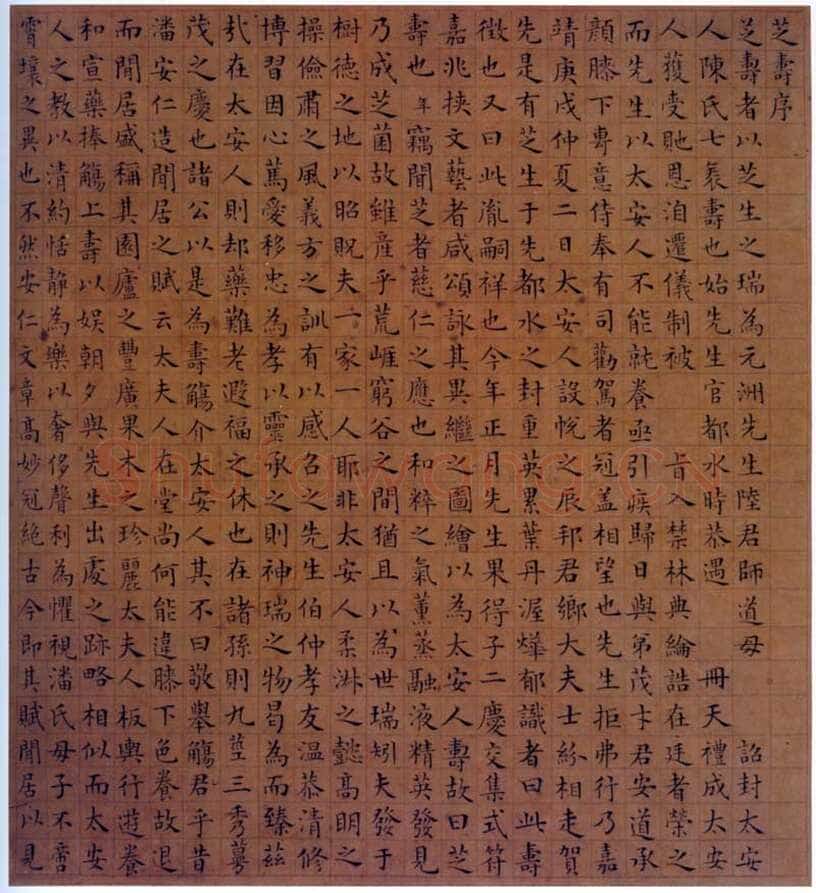 芝壽序
芝壽者以芝生之瑞為元洲先生陸君師道母 詔封太安
人陳氏七袠壽也始先生官都水時恭遇 冊天禮成太安
人獲受貤恩洎遷儀制被 旨入禁林典綸誥在廷者榮之
而先生以太安人不能就養亟引疾歸日與弟茂才君安道承
顏膝下專意侍奉有司勸駕者冠盖相望也先生拒弗行乃嘉
靖庚戌仲夏二日太安人設帨之辰邦君鄉大夫士紛相走賀
先是有芝生于先都水之封重英累葉丹渥燁郁識者曰此壽
徵也又曰此胤嗣祥也今年正月先生果得子二慶交集式符
嘉兆挟文藝者咸頌詠其異繼之圖繪以為太安人壽故曰芝
壽也年竊聞芝者慈仁之應也和粹之氣薰蒸融液精英發見
乃成芝菌故雖產乎荒崕窮谷之間猶且以為世瑞矧夫發于
樹德之地以昭貺夫一家一人耶非太安人柔淋之懿高明之
操儉肅之風義方之訓有以感召之先生伯仲孝友温恭清修
博習因心篤愛移忠為孝以靈承之則神瑞之物曷為而臻茲
㢤在太安人則却藥難老遐福之休也在諸孫則九莖三秀蕚
茂之慶也諸公以是為壽觴介太安人其不曰敬舉觴君乎昔
潘安仁造閒居之賦云太夫人在堂尚何能違膝下色養故退
而閒居盛稱其園廬之豐廣果木之珍麗太夫人板輿行遊養
和宣藥捧觴上壽以娱朝夕與先生出處之跡略相似而太安
人之教以清約恬静為樂以奢侈聲利為懼視潘氏母子不啻
霄壤之異也不然安仁文章高妙冠絶古今即其賦閒居以見
Shufawang.CN